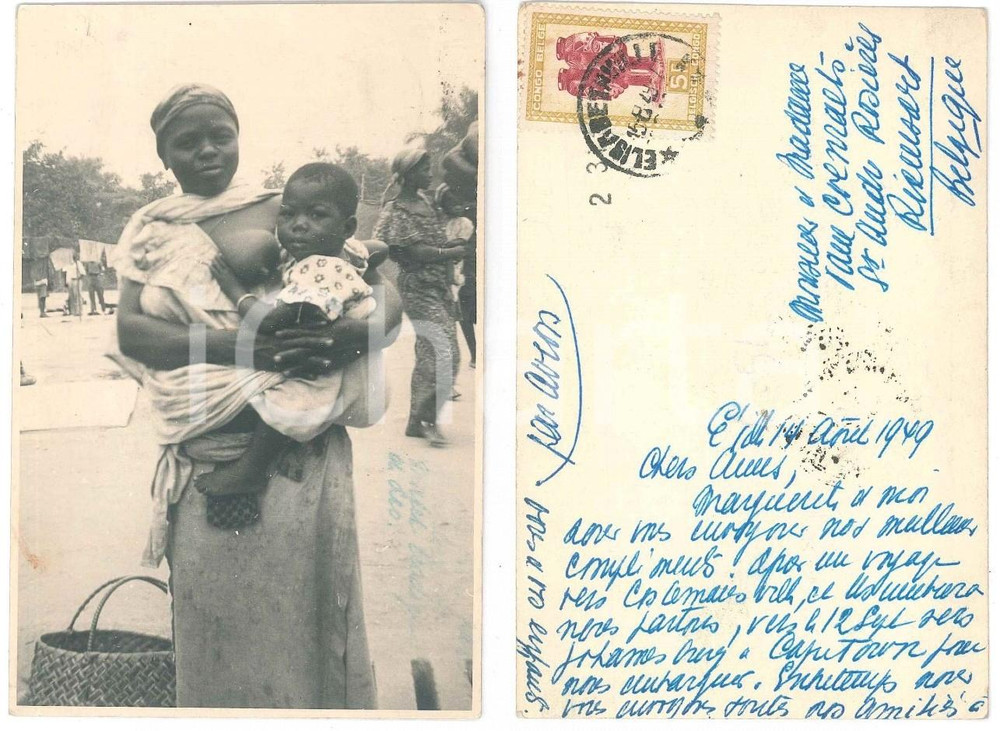 CONGO BELGE
BELGISCH CONGO
5F
ELISABETHVILLE
2 3
Monsieur et Madame
St André
Rixensart
Belgique
par avion
E'ville 14 Août 1949
Chers Amis,
Marguerite et moi
avons vous envoyons nos meilleurs
compliments. Après un voyage
vers Costermansville, et Usumbura
nous partons, vers le 12 Sept vers
Johannesburg & Capetown pour
nous embarquer. Entretemps nous
vous envoyons toutes nos amitiés à
vous à vos enfants